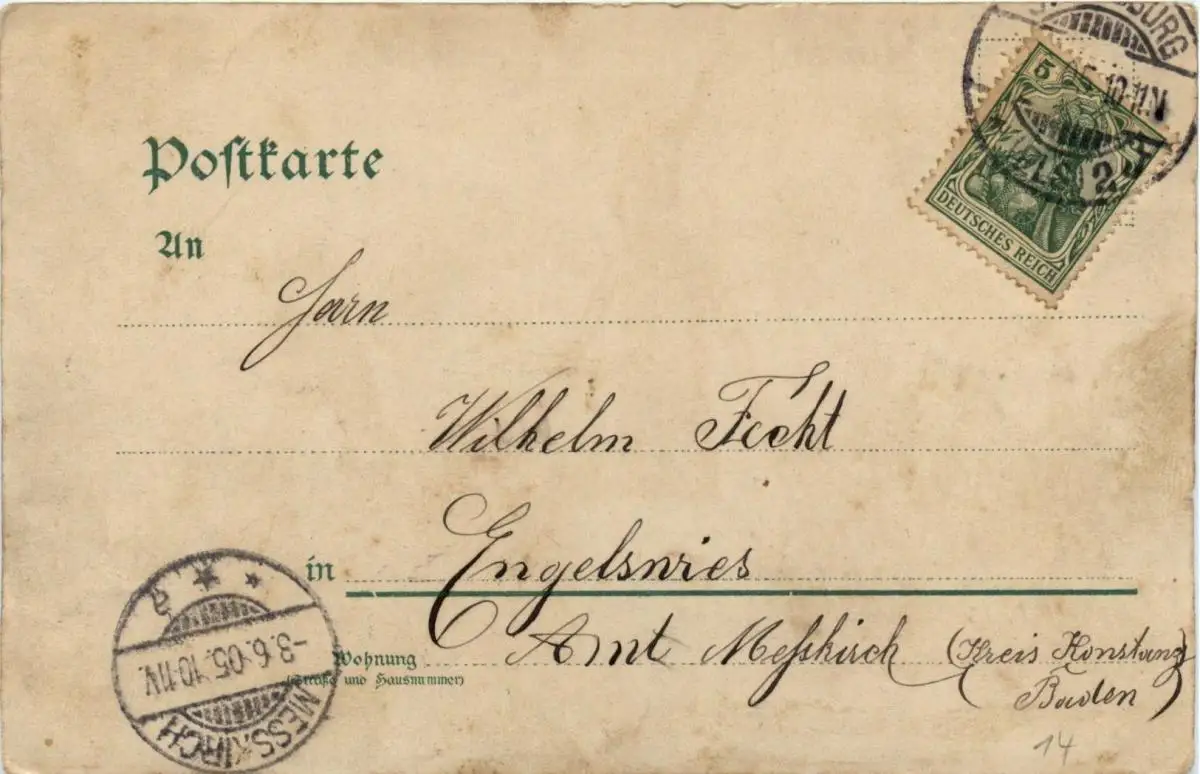 Postkarte
5
10-11.V
2
DEUTSCHES REICH
An
Herrn
Wilhelm Fecht
in Engelswies
Wohnung
(Straße und Hausnummer)
Amt Meſskirch (Kreis Konstanz
Baden)
a
-3.6.05.10-11V.
MESSKIRCH
14